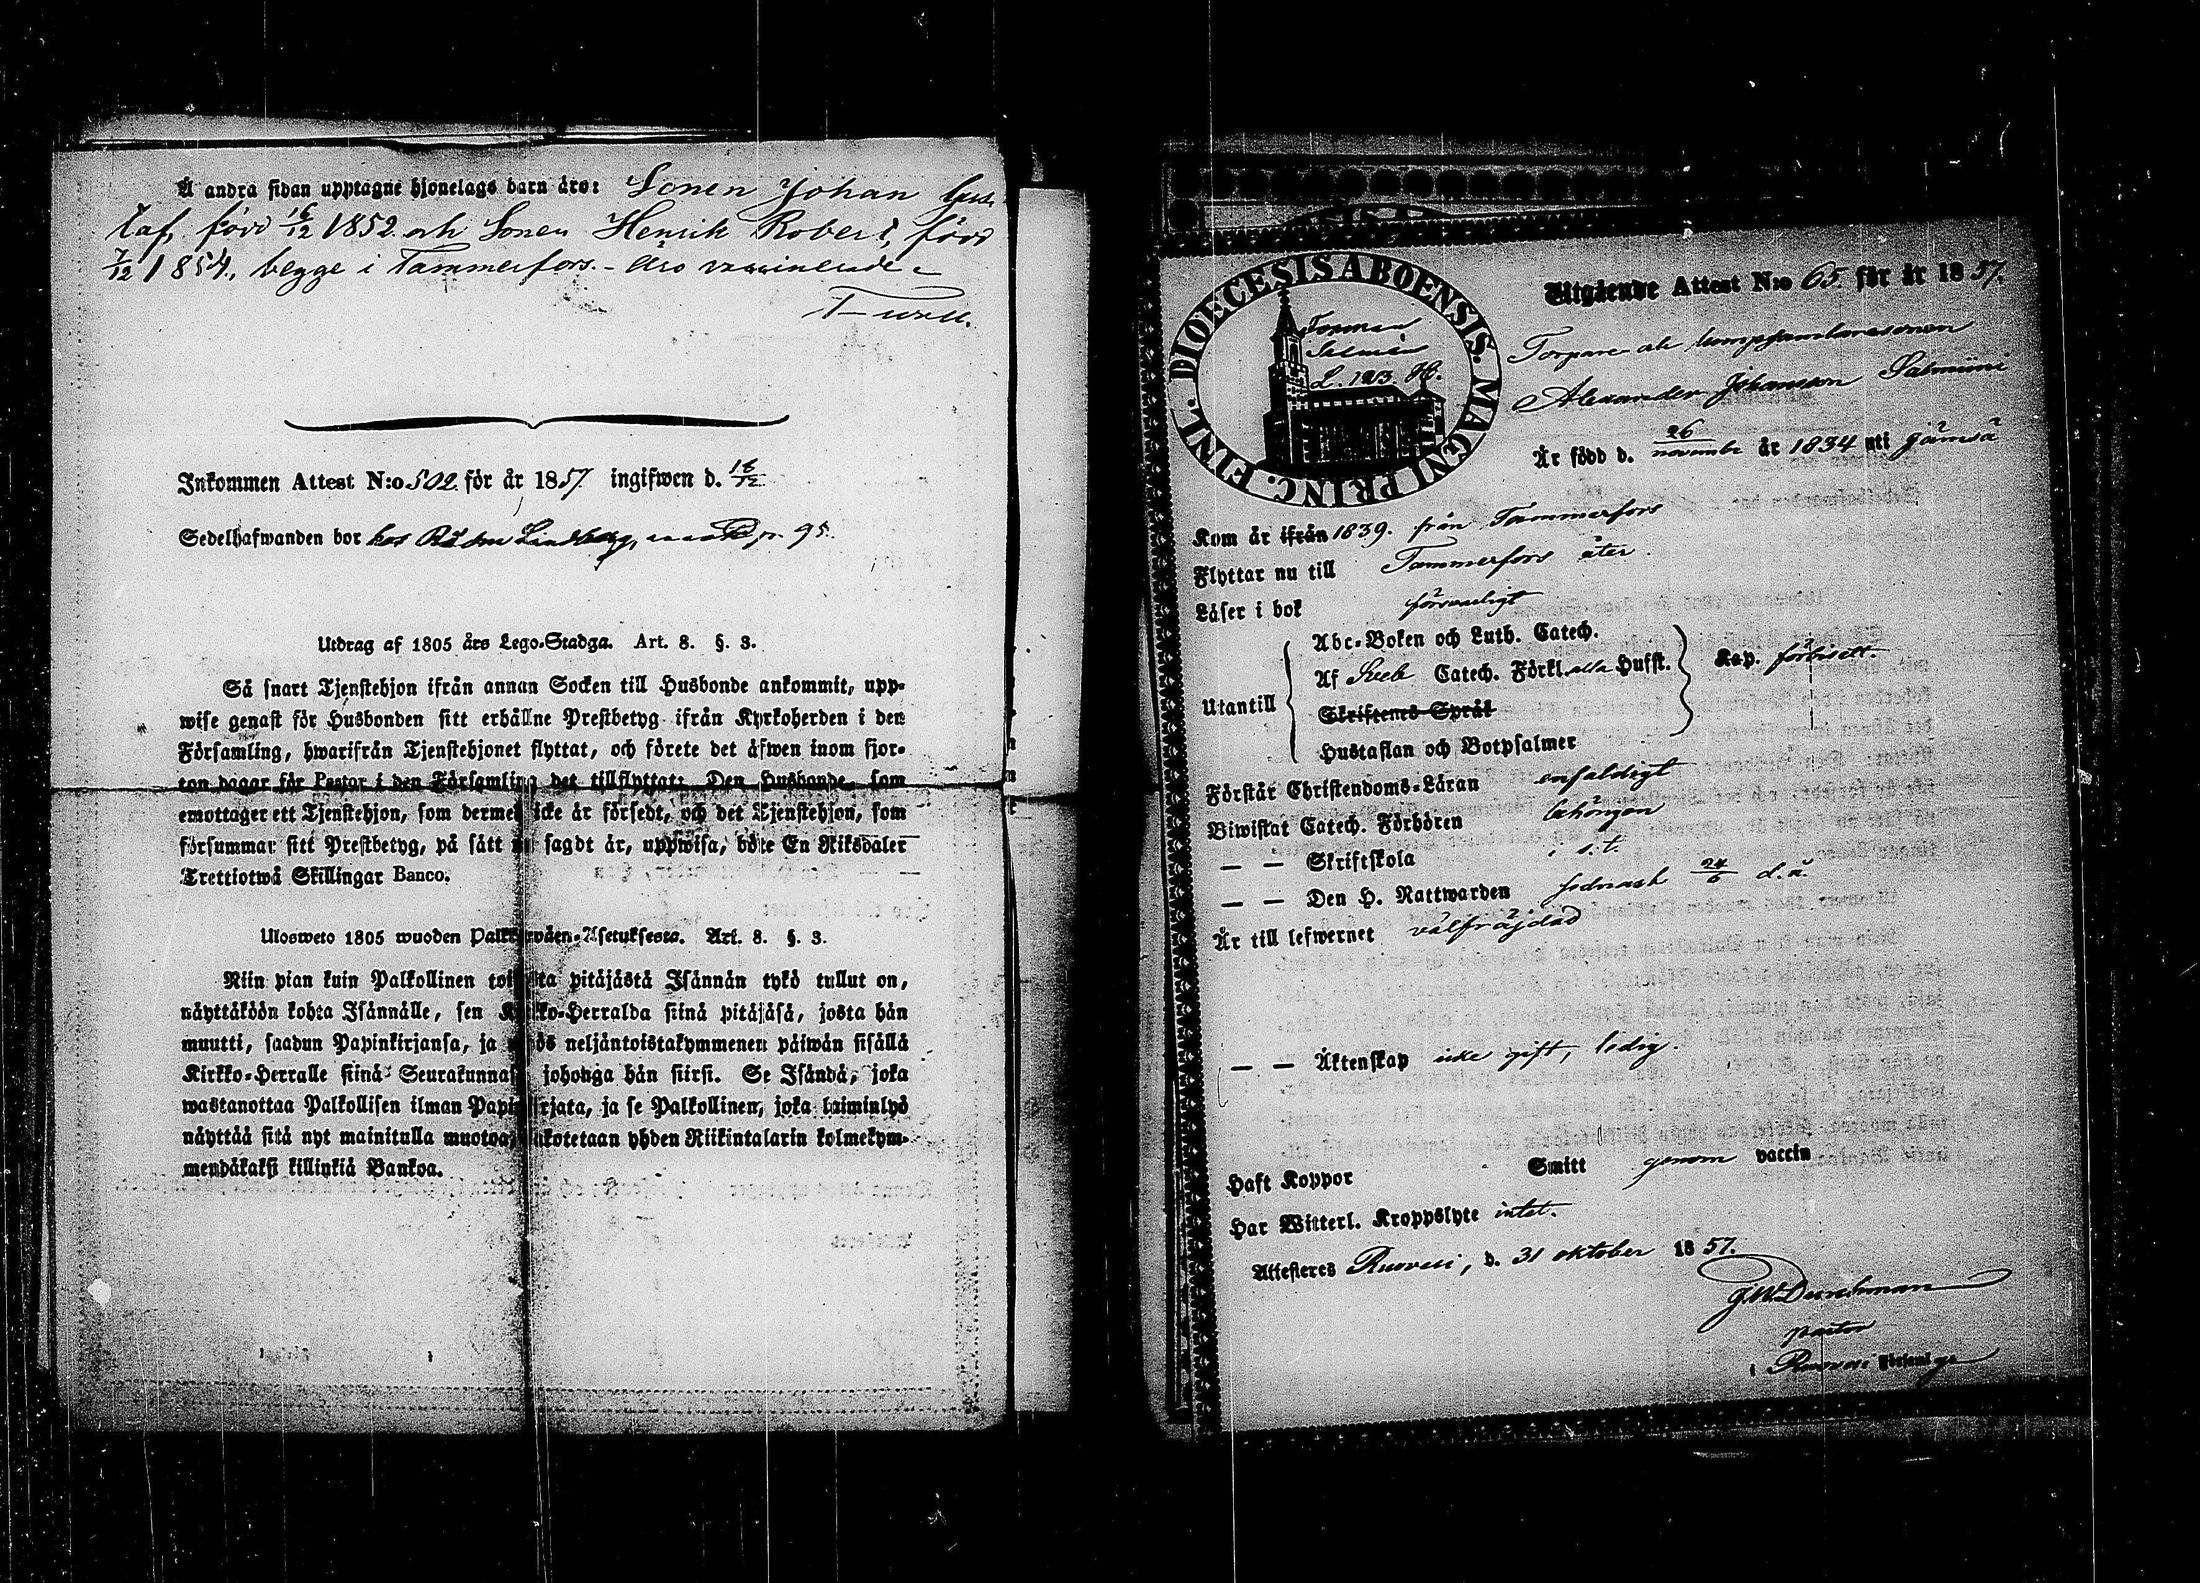 Å andra sidan upptagne hjonelags barn äro: Sonen Johan Gus-
taf, född 16/12 1852 och Sonen Henrik Robert, född
7/12 1854, begge i Tammerfors. - äro vaccinerade -
Inkommen Attest N:o 502 för år 1857. ingifwen d. 18/12
Sedelhafwanden bor hos Rådm Lindberg, 95.
Utdrag af 1805 års Lego-Stadga. Art. 8. §. 3.
Så snart Tjenstehjon ifrån annan Socken till Husbonde ankommit, upp-
wise genast för Husbonden sitt erhållne Prestbetyg ifrån Kyrkoherden i den
Församling, hwarifrån Tjenstehjonet flyttat, och förete det äfwen inom fjor-
ton dagar för Pastor i den Församling det tillflyttat: Den Husbonde, som
emottager ett Tjenstehjon, som dermed icke är försedt, och det Tjenstehjon, som
försummar sitt Prestbetyg, på sätt nu sagdt är, uppwisa, böte En Riksdaler
Trettiotwå Skillingar Banco.
Ulosweto 1805 wuoden Palkkawäen-Asetuksesta. Art. 8. §. 3.
Niin pian kuin Palkollinen toisesta pitäjästä Isännän tykö tullut on,
näyttäköön kohta Isännälle, sen Kirkko-Herralda siinä pitäjäsä, josta hän
muutti, saadun Papinkirjansa, ja myös neljäntoistakymmenen päiwän sisällä
Kirkko-Herralle siinä Seurakunnasa johonga hän siirsi. Se Isändä, joka
wastanottaa Palkollisen ilman Papinkirjata, ja se Palkollinen, joka laiminlyö
näyttää sitä nyt mainitulla muotoa, sakotetaan yhden Riikintalarin kolmekym-
mendäkaksi killinkiä Bankoa.
DIOECESIS ABOENSIS. MAGNI PRINC. FINL.
L. 123 H.
Utgående Attest N:o 65 för år 1857.
Torpare och lumpsamlaresonen
Alexander Johansson Salmiini
Är född d. 26 november år 1834 uti Jämsä
Kom år ifrån 1839. från Tammerfors
Flyttar nu till Tammerfors åter.
Läser i bok försvarligt
Abc-Boken och Luth. Catech.
Af Sveb Catech. Förkl. alla Hufst. Kap. förbisett.
Utantill
Skriftenes Språk
Hustaflan och Botpsalmer
Förstår Christendoms-Läran enfaldigt
Biwistat Catech. Förhören behörigen
— — Skriftskola i s. t.
— — Den H. Nattwarden sednast 24/6 d. å.
Är till lefwernet välfräjdad
— — Äktenskap icke gift, ledig.
Haft Koppor Smitt genom vaccin
Har Witterl. Kroppslyte intet.
Attesteras Ruovesi, d. 31 oktober 1857.
pastor
i Ruovesi Församl.